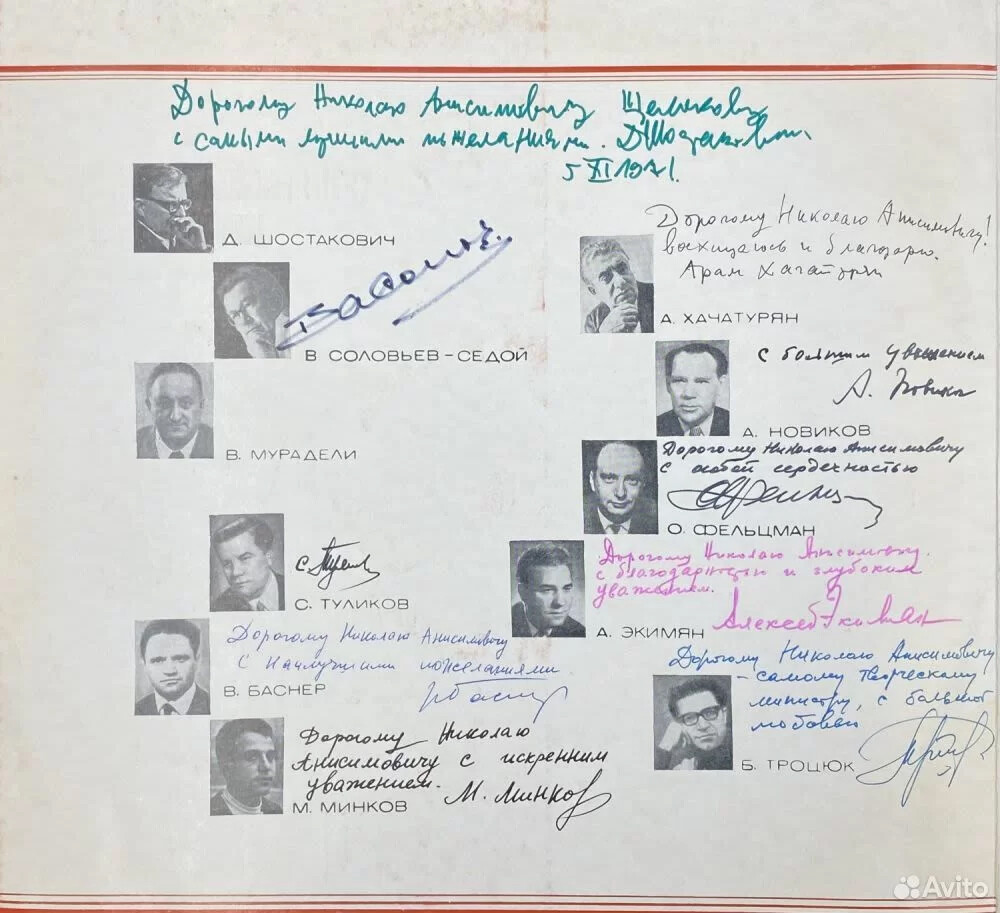 Дорогому Николаю Анисимовичу Щелокову
с самыми лучшими пожеланиями. ДШостакович.
5 XI 1971.
Д. ШОСТАКОВИЧ
Дорогому Николаю Анисимовичу!
восхищаюсь и благодарю.
Арам Хачатурян
А. ХАЧАТУРЯН
В СОЛОВЬЕВ-СЕДОЙ
С большим уважением
А. Новиков
А. НОВИКОВ
В. МУРАДЕЛИ
Дорогому Николаю Анисимовичу
с особой сердечностью
О. ФЕЛЬЦМАН
С. ТУЛИКОВ
Дорогому Николаю Анисимовичу.
с благодарностью и глубоким
уважением.
Алексей Экимян
А. ЭКИМЯН
Дорогому Николаю Анисимовичу
с наилучшими пожеланиями.
В. БАСНЕР
Дорогому Николаю Анисимовичу
- самому творческому
министру, с большой
любовью
Б. ТРОЦЮК
Дорогому Николаю
Анисимовичу с искренним
уважением.
М. Минков
М. МИНКОВ
Avito